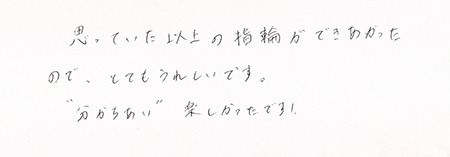 思っていた以上の指輪ができあがった
ので、とてもうれしいです。
"分かちあい" 楽しかったです!